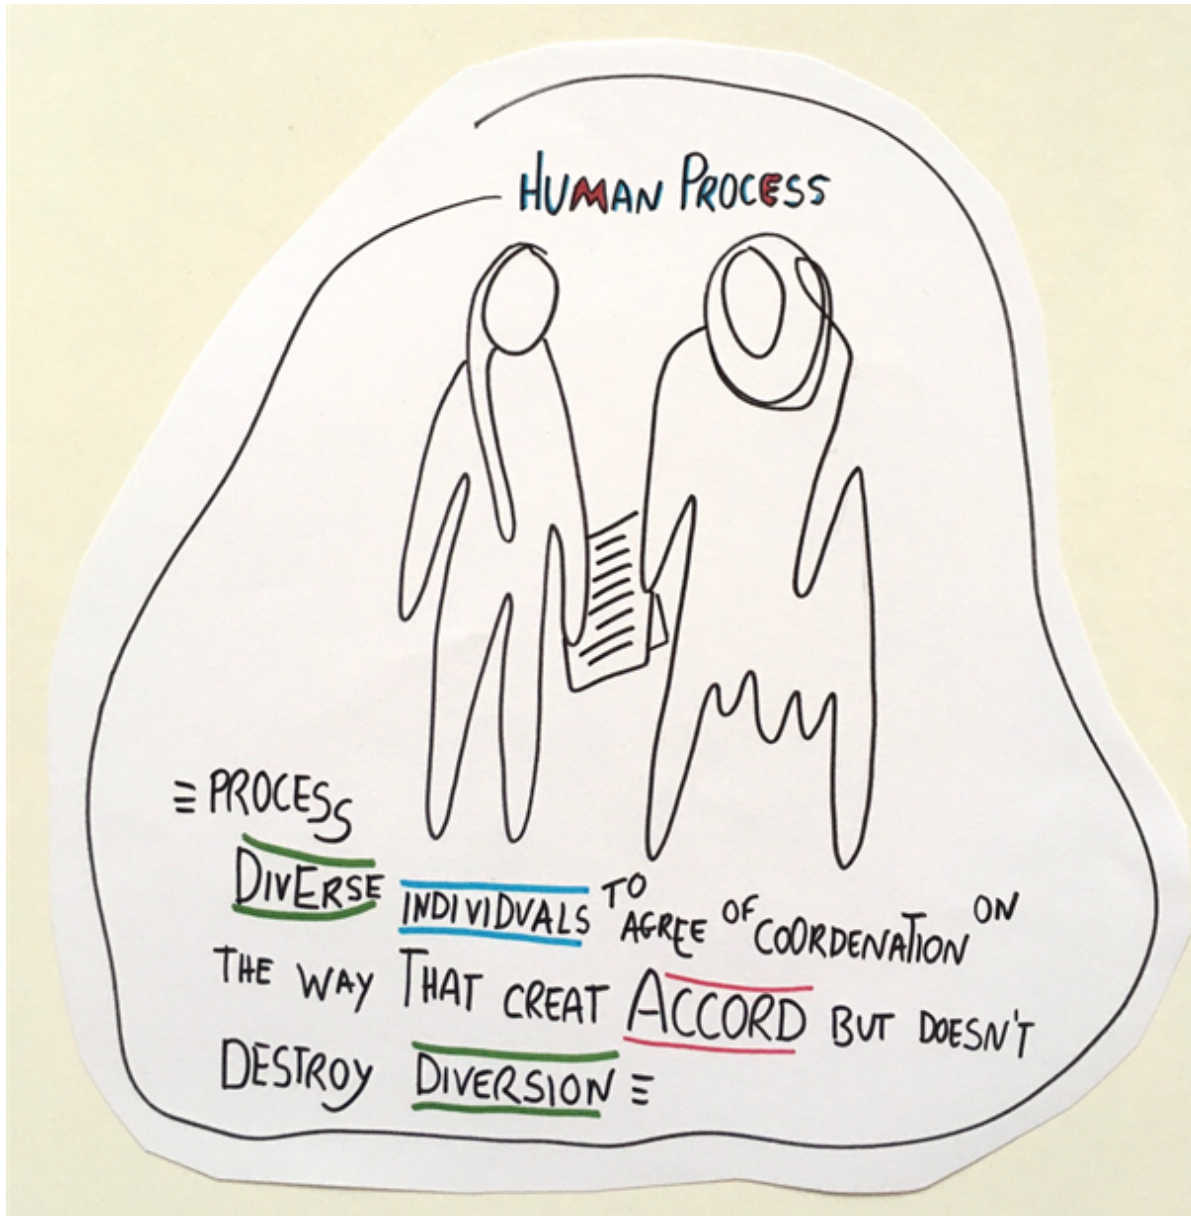 HUMAN PROCESS
≡ PROCESS
DIVERSE INDIVIDUALS TO AGREE OF COORDENATION ON
THE WAY THAT CREAT ACCORD BUT DOESN'T
DESTROY DIVERSION ≡